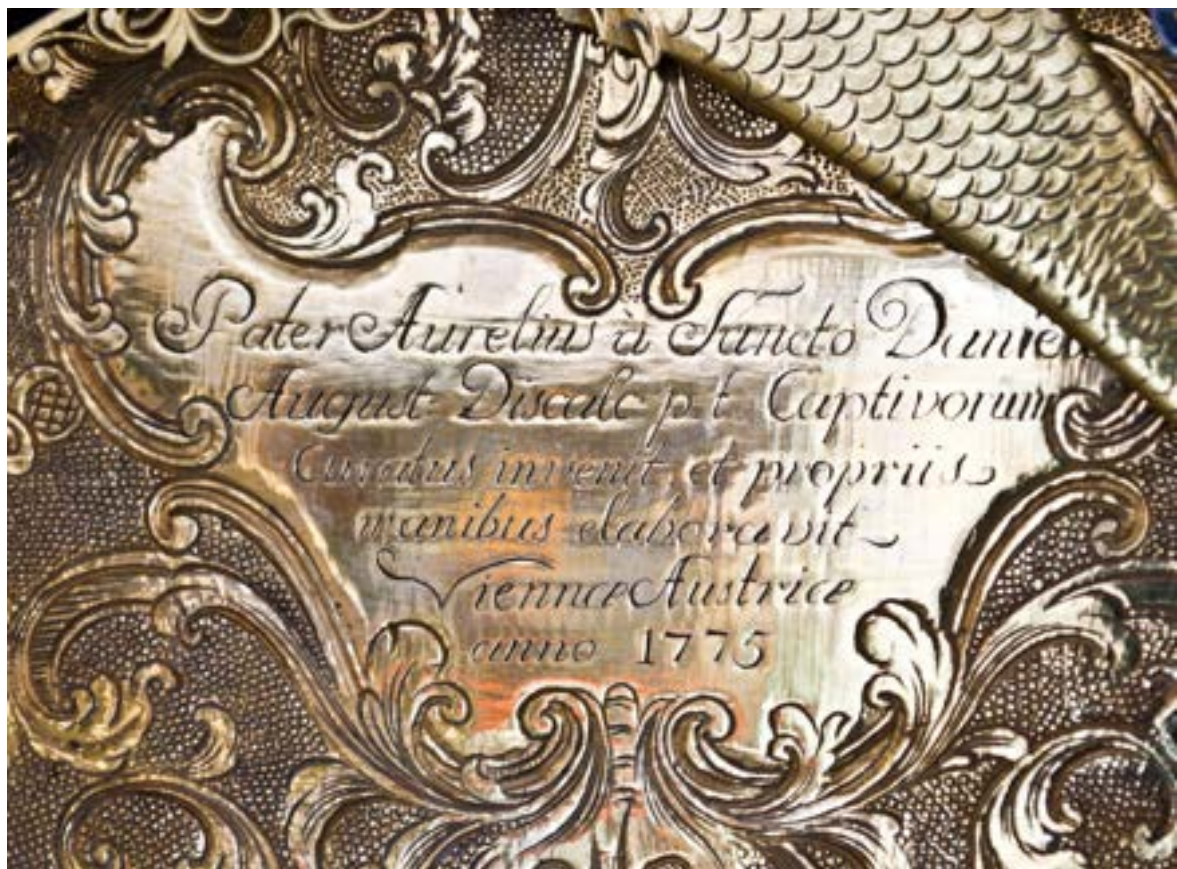 Pater Aurelius à Sancto Daniele
August Discalc p. t. Captivorum
Curatus invenit, et propriis
manibus elaboravit
Viennæ Austriæ
anno 1775